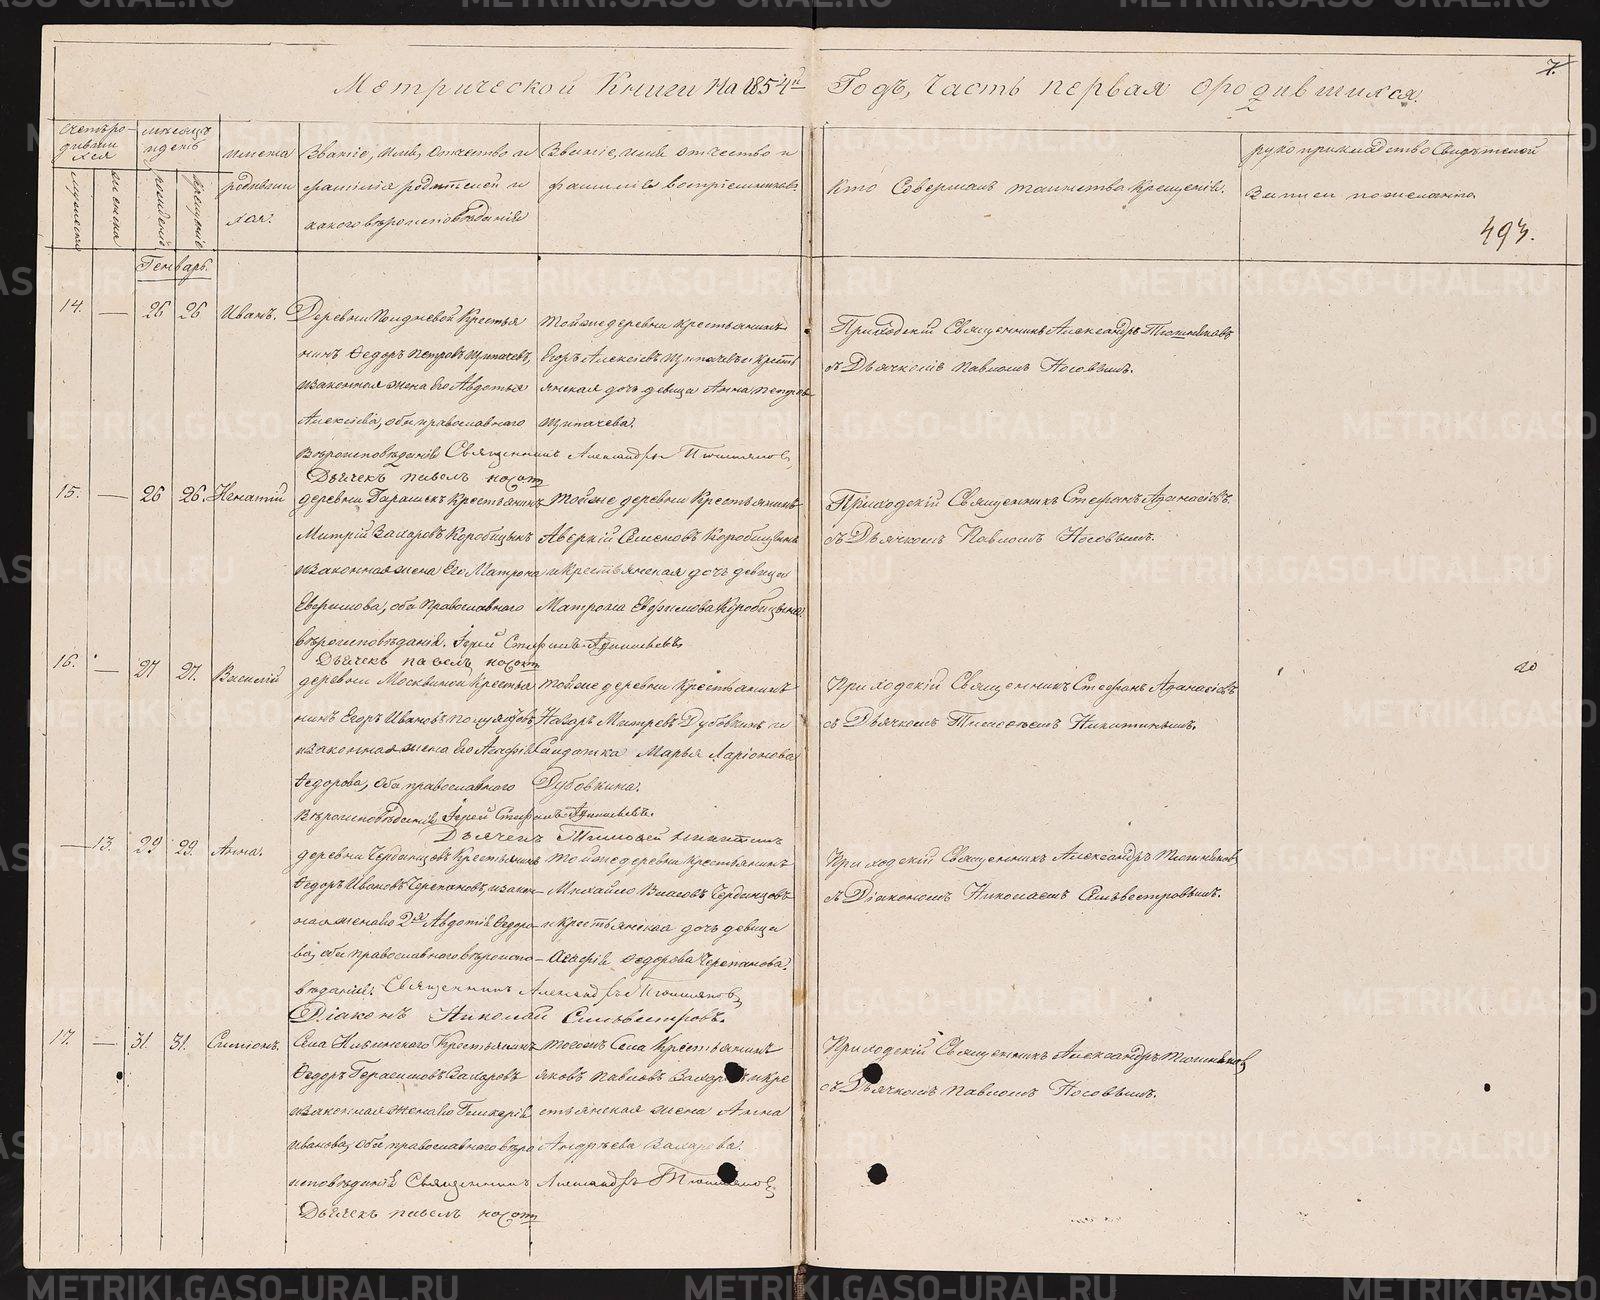 Метрической Книги на 1854й Годъ, Часть первая о родившихся.
7.
493.
Счетъ ро-
дивши
хся
мужеска
женска
мѣсяцъ
и день
рожденія
крещенія
имена
родивши
хся.
Званіе, имя, отчество и
фамилія родителей и
какого вѣроисповѣданія
Званіе, имя отчество и
фамилія воспріемниковъ
Кто Совершалъ таинство Крещенія.
рукоприкладство Свидѣтелей
Записи по желанію
Генварь.
14. — 26 26 Иванъ.
Деревни Полдневой Крестья
нинъ Ѳедоръ Петровъ Щипачевъ,
и законная жена Его Авдотья
Алексіева, оба православнаго
вѣроисповѣданія Священникъ Александръ Тюшняковъ
Дьячекъ павелъ носовъ
Тойже деревни крестьянинъ
Егоръ Алексіевъ Щипачевъ и Крестъ
янская дочь девица Анна петрова
Щипачева.
Приходскій Священникъ Александръ Тюшняковъ
съ Дьячкомъ Павломъ Носовымъ.
15. — 26 26. Игнатій
деревни Гарашекъ Крестьянинъ
Митрій Захаровъ Коробицынъ
и законная жена Его Матрона
Евфимова, оба Православнаго
вѣроисповѣданія. Іерей Стефанъ Афанасьевъ
Дьячекъ павелъ носовъ
Тойже деревни Крестьянинъ
Аверкій Семеновъ Коробицынъ
и Крестьянская дочь девица
Матрона Евфимова Коробицына.
Приходскій Священникъ Стефанъ Афанасіевъ.
съ Дьячкомъ Павломъ Носовымъ.
16. — 27 27. Василій
деревни Москвиной Крестья
нинъ Егоръ Ивановъ Полуяхтовъ,
и законная жена Его Агафія
Ѳедорова, оба православнаго
Вѣроисповѣданія Іерей Стефанъ Афанасьевъ.
Дьячекъ Тимоѳей Никитинъ
Тойже деревни Крестьянинъ
Назаръ Митревъ Дубовкинъ и
Солдатка Марья Ларіонова
Дубовкина.
Приходскій Священникъ Стефанъ Афанасіевъ
съ Дьячкомъ Тимоѳеемъ Никитинымъ.
— 13. 29 29. Анна.
Ѳедоръ Ивановъ Черепановъ, и закон-
ная жена Его 2я Авдотія Ѳедоро-
ва, оба православнаго вѣроиспо-
вѣданія. Священникъ Александръ Тюшняковъ
Діаконъ Николай Сильвестровъ.
Тойже деревни крестьянинъ
и крестьянская дочь девица
Агафія Ѳедорова Черепанова.
Приходскій Священникъ Александръ Тюшняковъ
съ Діакономъ Николаемъ Сильвестровымъ.
17. — 31. 31. Симіонъ.
Села Ильинского Крестьянинъ
Ѳедоръ Герасимовъ Захаровъ
и законная жена Его Гликерія
Иванова, оба православнаго вѣро
исповѣданія Священникъ Александръ Тюшняковъ
Дьячекъ павелъ носовъ
тогожъ Села Крестьянинъ
яковъ павловъ Захаровъ и кре
стьянская жена Анна
Андрѣева Захарова.
Приходскій Священникъ Александръ Тюшняковъ
съ Дьячкомъ Павломъ Носовымъ.
METRIKI.GASO-URAL.RU